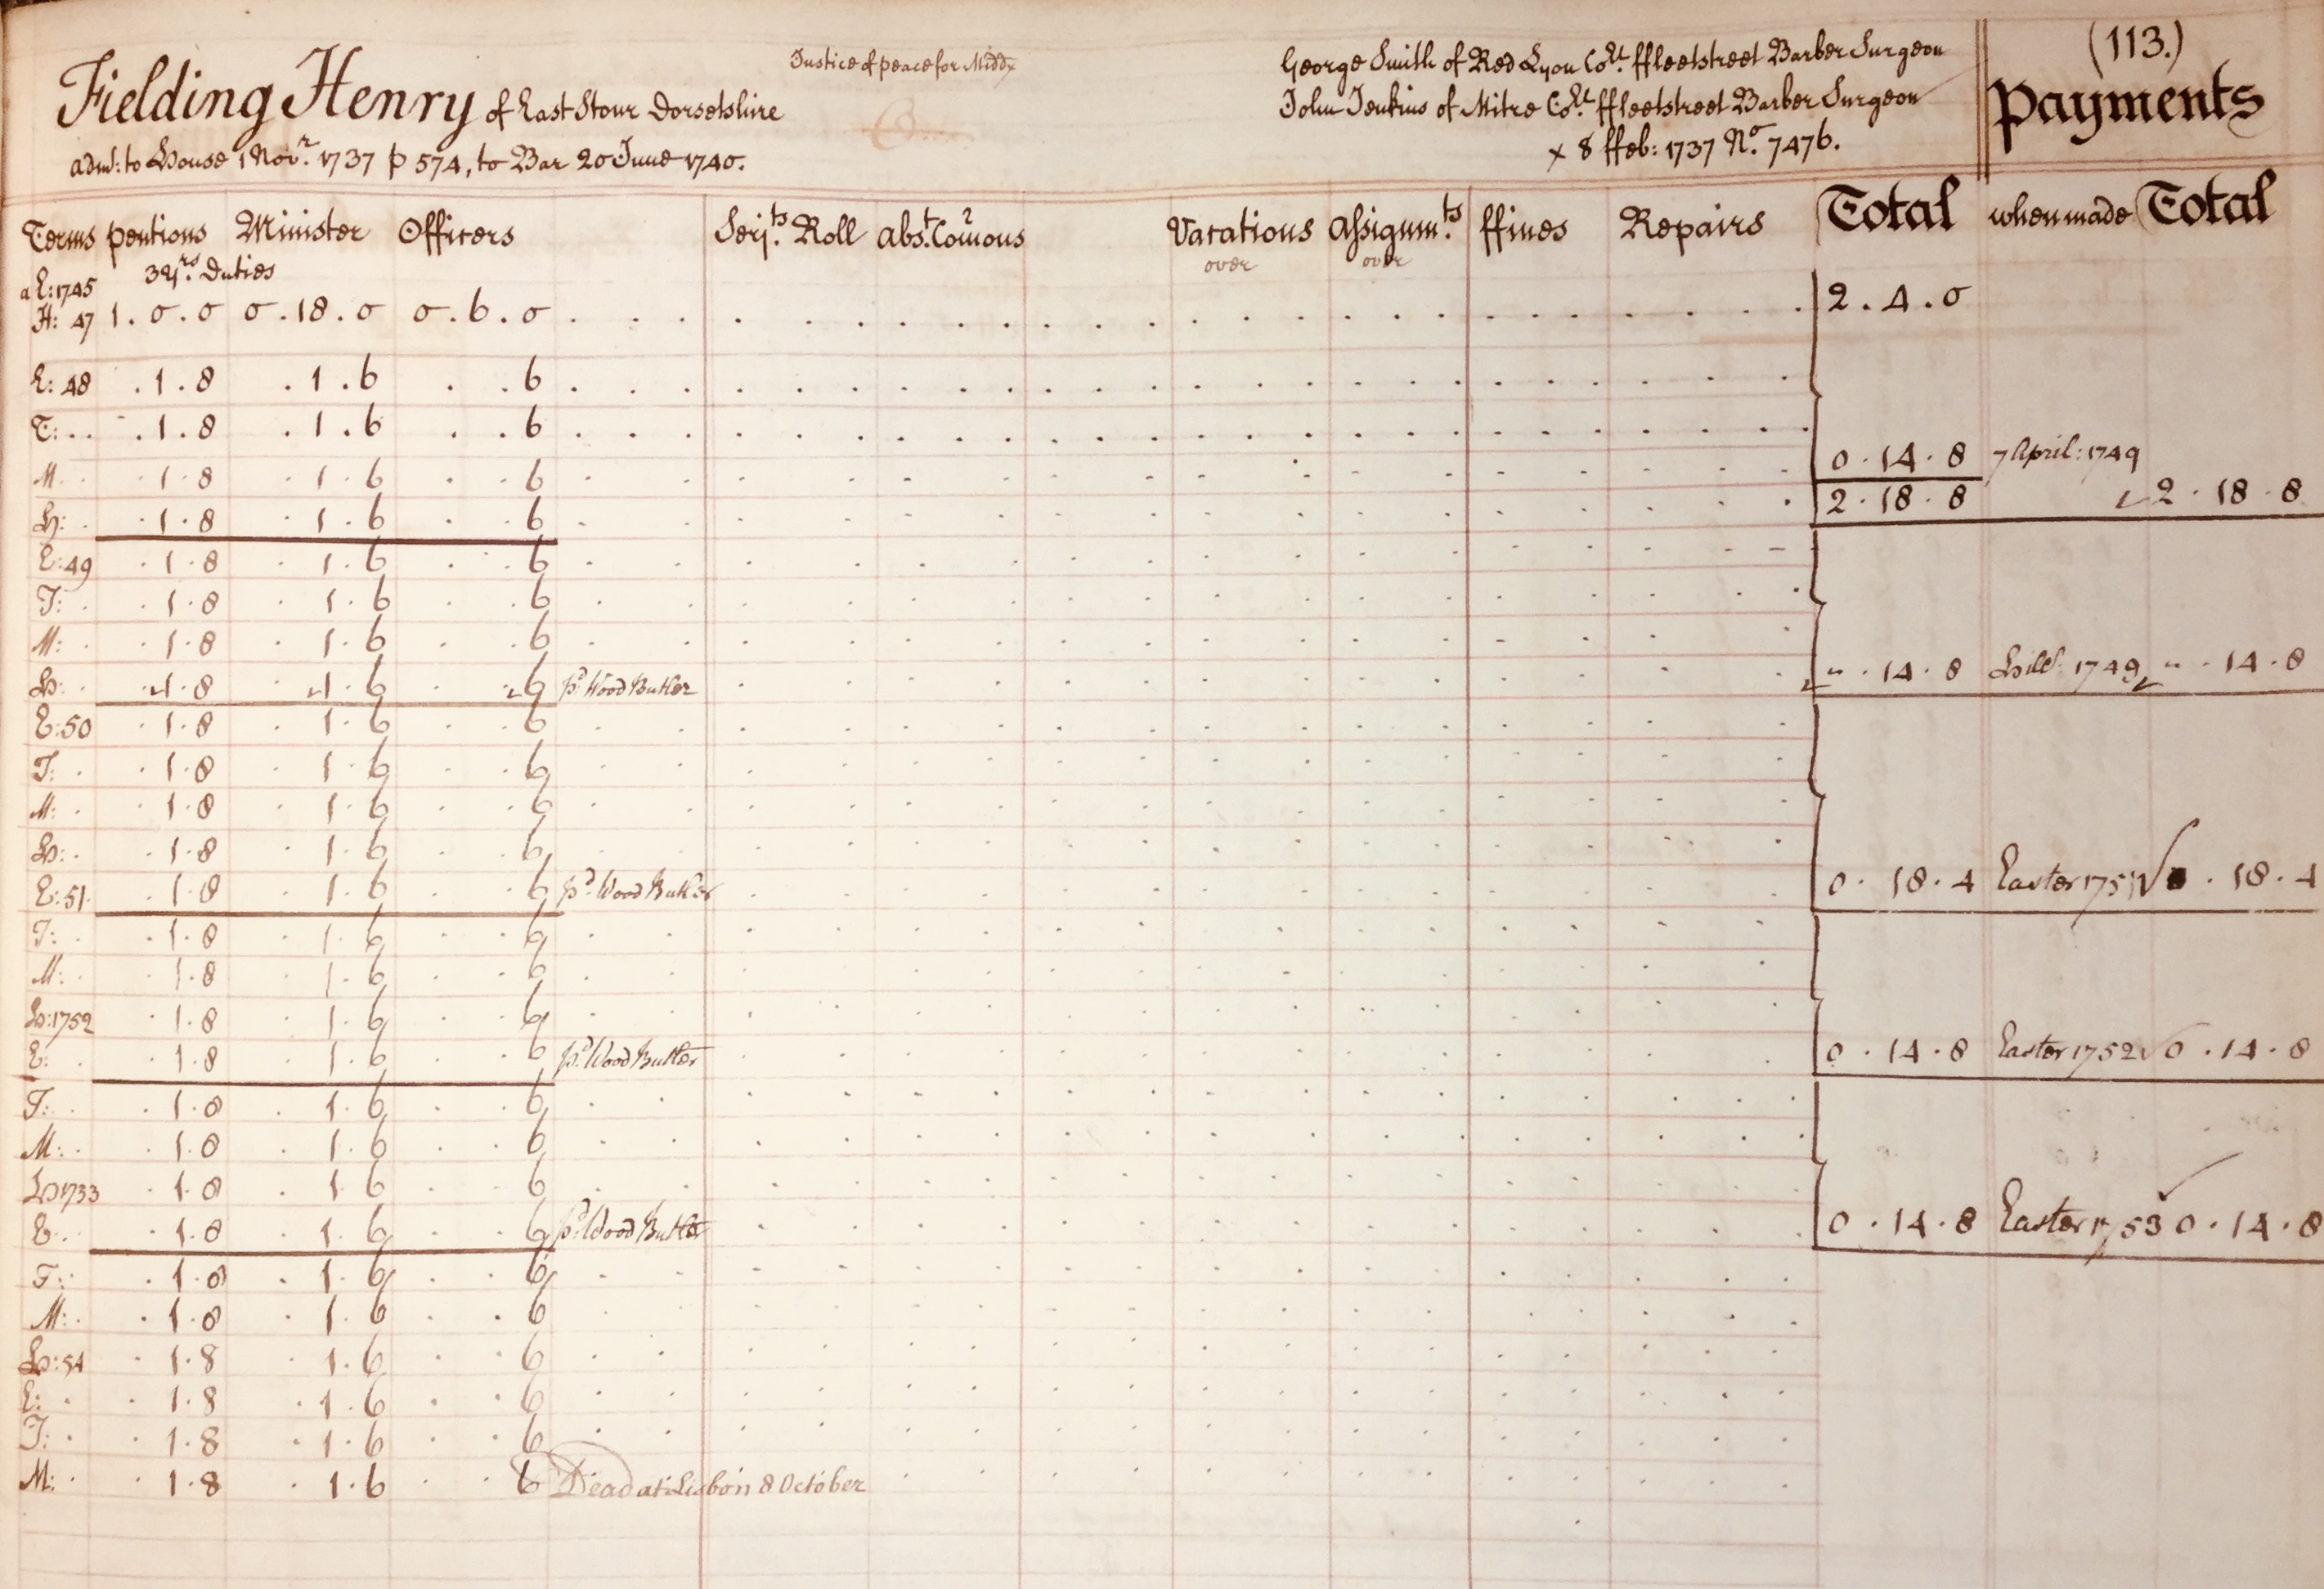 (113.)
Justice of peace for Middx
George Smith of Red Lyon Cort. ffleetstreet Barber Surgeon
Fielding Henry of East Stour Dorsetshire
John Jenkins of Mitre Cort. ffleetstreet Barber Surgeon
Payments
adm: to House 1 Novr. 1737 p 574, to Bar 20 June 1740.
x 8 ffeb: 1737 No. 7476.
Terms pentions Minister Officers Serjts. Roll abst. Comons Vacations Assignmts. ffines Repairs Total when made Total
3 yrs. Duties over over
a E: 1745
H: 47 1 . 0 . 0 0 . 18 . 0 0 . 6 . 0 2 . 4 . 0
E: 48 . 1 . 8 . 1 . 6 . . 6
T: . . . 1 . 8 . 1 . 6 . . 6
M . . . 1 . 8 . 1 . 6 . . 6 0 . 14 . 8 7 April: 1749
H: . . 1 . 8 . 1 . 6 . . 6 2 . 18 . 8 2 . 18 . 8
E: 49 . 1 . 8 . 1 . 6 . . 6
T: . . 1 . 8 . 1 . 6 . . 6
M: . . 1 . 8 . 1 . 6 . . 6
H: . . 1 . 8 . 1 . 6 . 6 pd. Wood Butler " . 14 . 8 Hill: 1749 " . 14 . 8
E: 50 . 1 . 8 . 1 . 6 . . 6
T: . . 1 . 8 . 1 . 6 . . 6
M: . . 1 . 8 . 1 . 6 . . 6
H: . . 1 . 8 . 1 . 6 . . 6
E: 51 . 1 . 8 . 1 . 6 . . 6 pd. Wood Butler 0 . 18 . 4 Easter 1751 . 18 . 4
T: . . 1 . 8 . 1 . 6 . . 6
M: . . 1 . 8 . 1 . 6 . . 6
H: 1752 . 1 . 8 . 1 . 6 . . 6
E: . . 1 . 8 . 1 . 6 . . 6 pd. Wood Butler 0 . 14 . 8 Easter 1752 0 . 14 . 8
T: . . 1 . 8 . 1 . 6 . . 6
M: . . 1 . 8 . 1 . 6 . . 6
H 1733 . 1 . 8 . 1 . 6 . . 6
E . . . 1 . 8 . 1 . 6 . . 6 pd. Wood Butler 0 . 14 . 8 Easter 1753 0 . 14 . 8
T: . . 1 . 8 . 1 . 6 . . 6
M: . . 1 . 8 . 1 . 6 . . 6
H: 54 . 1 . 8 . 1 . 6 . . 6
E: . . 1 . 8 . 1 . 6 . . 6
T: . . 1 . 8 . 1 . 6 . . 6
M: . . 1 . 8 . 1 . 6 . . 6 Dead at Lisbon 8 October